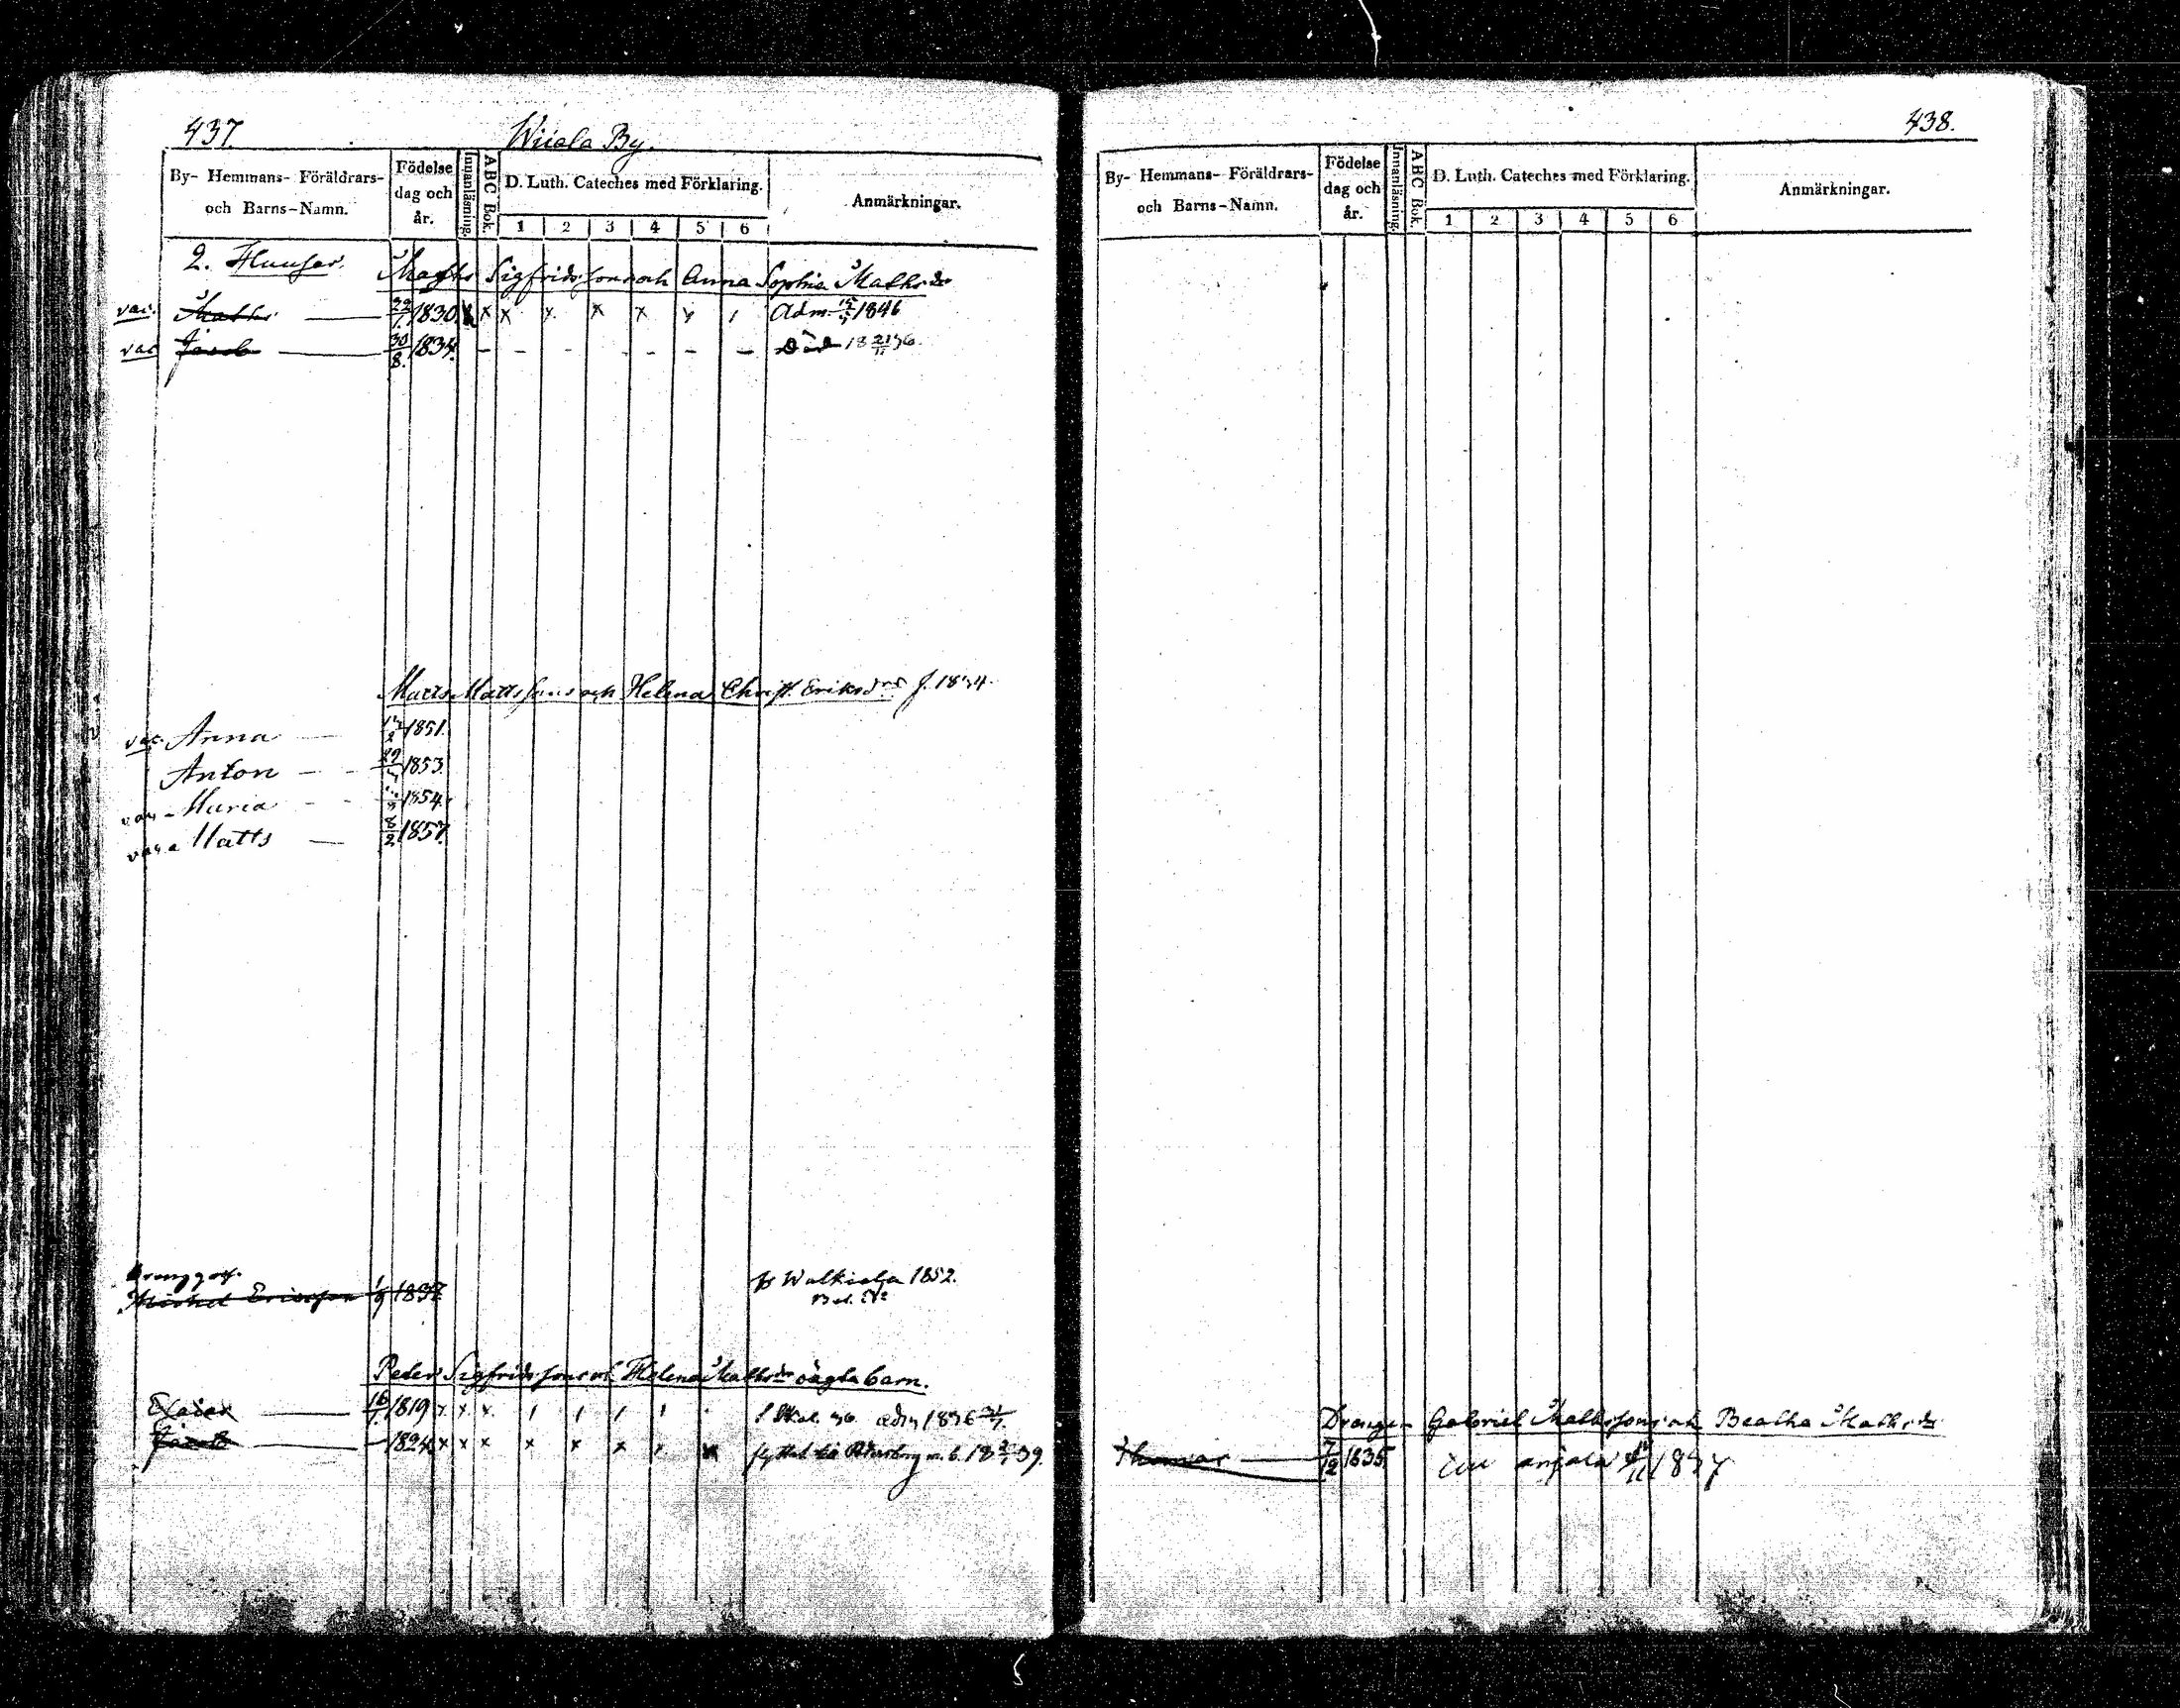 437.
Wiiala By.
By- Hemmans- Föräldrars- och Barns-Namn.
Födelse dag och år.
Innanläsning.
ABC Bok.
D. Luth. Cateches med Förklaring.
1 2 3 4 5 6
Anmärkningar.
2. 
Sigfridsson och Anna Sophia Mathsdr
vac. Maths 1830 x x x x x x Adm. 1846
vac Jacob 30/8. 1834. – – – – – – – Död 18 36.
Matts Mattsson och Helena Christ. Eriksdr f.
vac. Anna 1851.
Anton 29 1853.
Maria 1854.
Matts 8/2 1857.
Michel Ericsson 1/9 1837 1852.
Peter Sigfridsson och Helena Mathsdr oägta barn.
16 1819 x x x
Jacob – 1824 x x x x x x flyttat m. b. 18 39.
438.
By- Hemmans- Föräldrars- och Barns-Namn.
Födelse dag och år.
Innanläsning.
ABC Bok.
D. Luth. Cateches med Förklaring.
1 2 3 4 5 6
Anmärkningar.
Drengen Gabriel Mathsson och Beatha Mathsdr
Thomas 7/12 1835 anjala